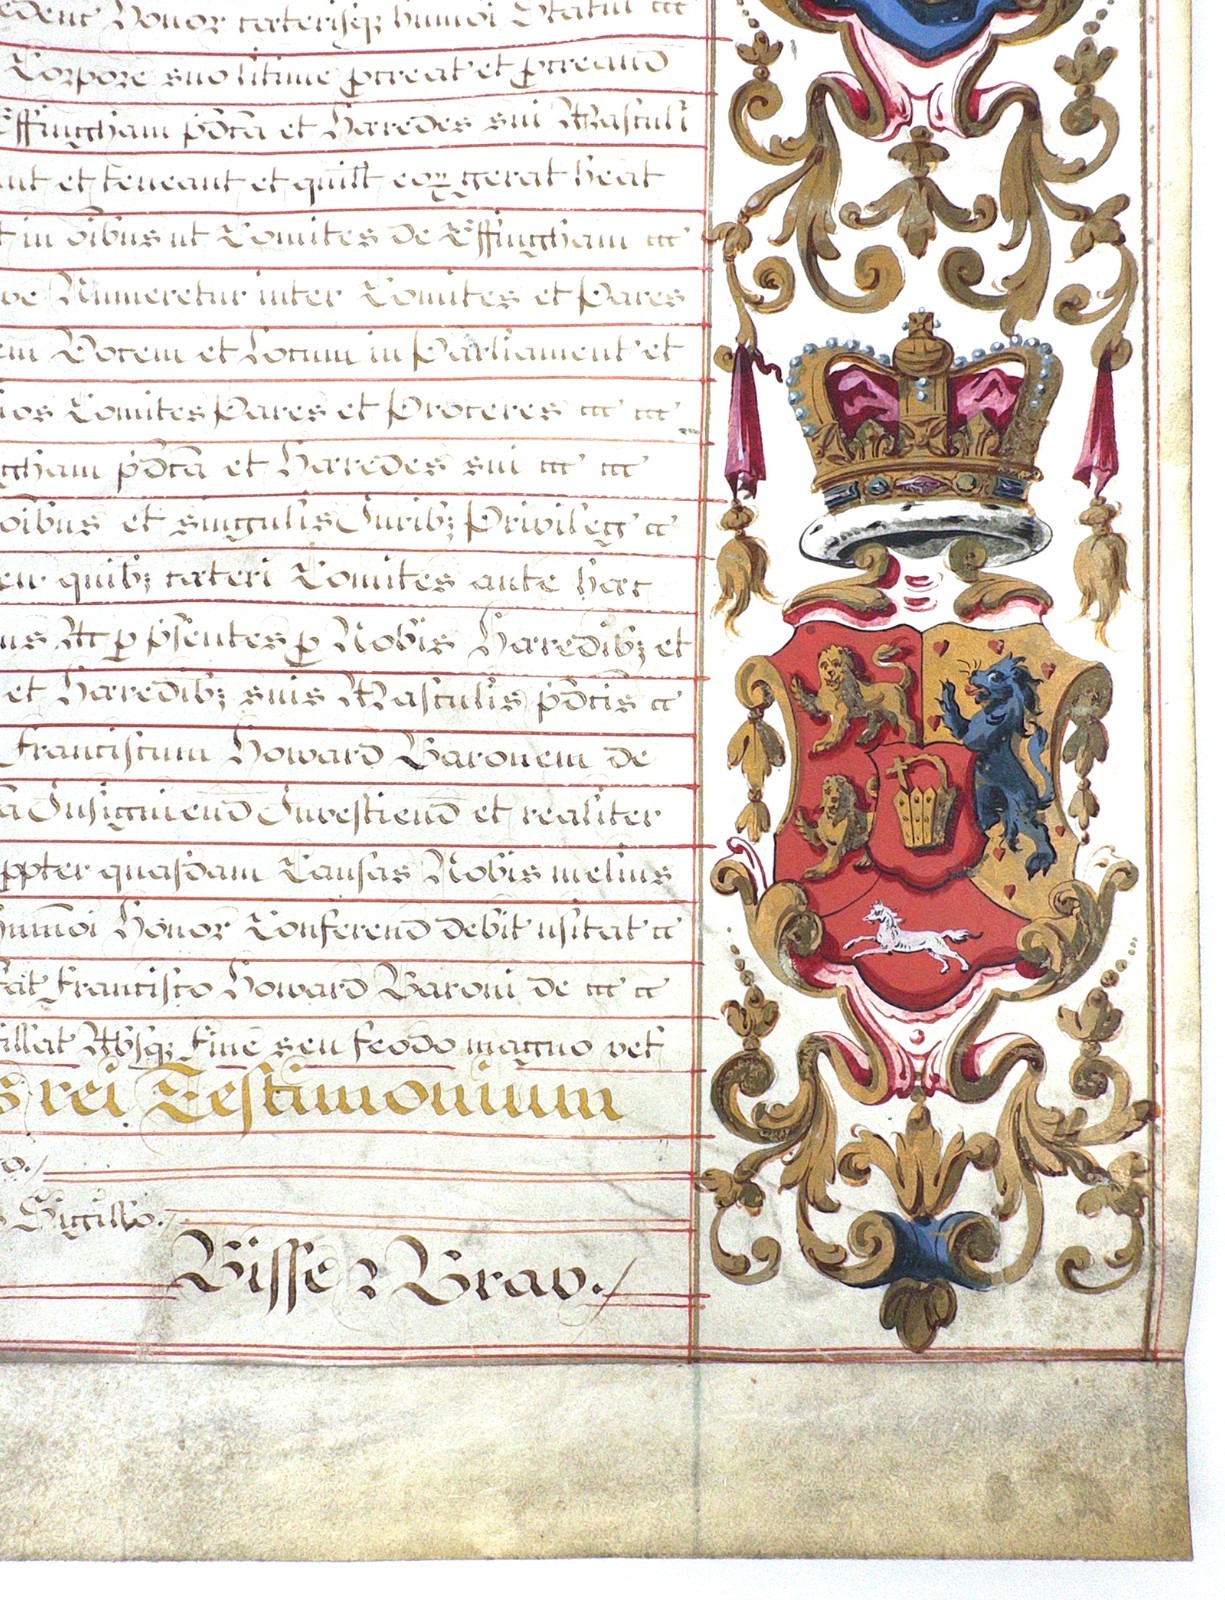 Honor cæterisq; hūmoi Statui
Corpore suo litime pcreat et pcreand
Effingham pd̄ca et Hæredes sui Masculi
et teneant et quilt eoꝝ gerat heat
in oibus ut Comites de Effingham
Numeretur inter Comites et Pares
Vocem et Locum in Parliament et
Comites Pares et Proceres
pd̄ca et Hæredes sui
et singulis Juribz Privileg
quibz cæteri Comites ante hæc
p psentes p Nobis Hæredibz et
et Hæredibz suis Masculis pd̄cis
Franciscum Howard Baronem de
Insigniend Investiend et realiter
ppter quasdam Causas Nobis melius
hūmoi Honor Conferend debit usitat
Francisco Howard Baroni de
Absq; Fine seu feodo magno vel
rei Testimonium
Sigillo./
Bisse & Bray./